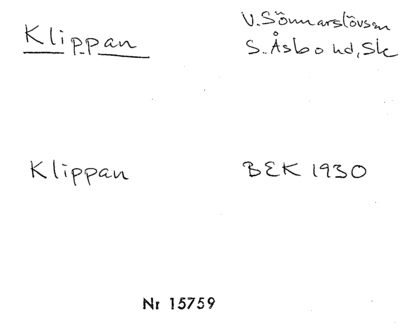 Klippan
V. Sönnarslövs sn
S. Åsbo hd, Sk
Klippan
BEK 1930
Nr 15759